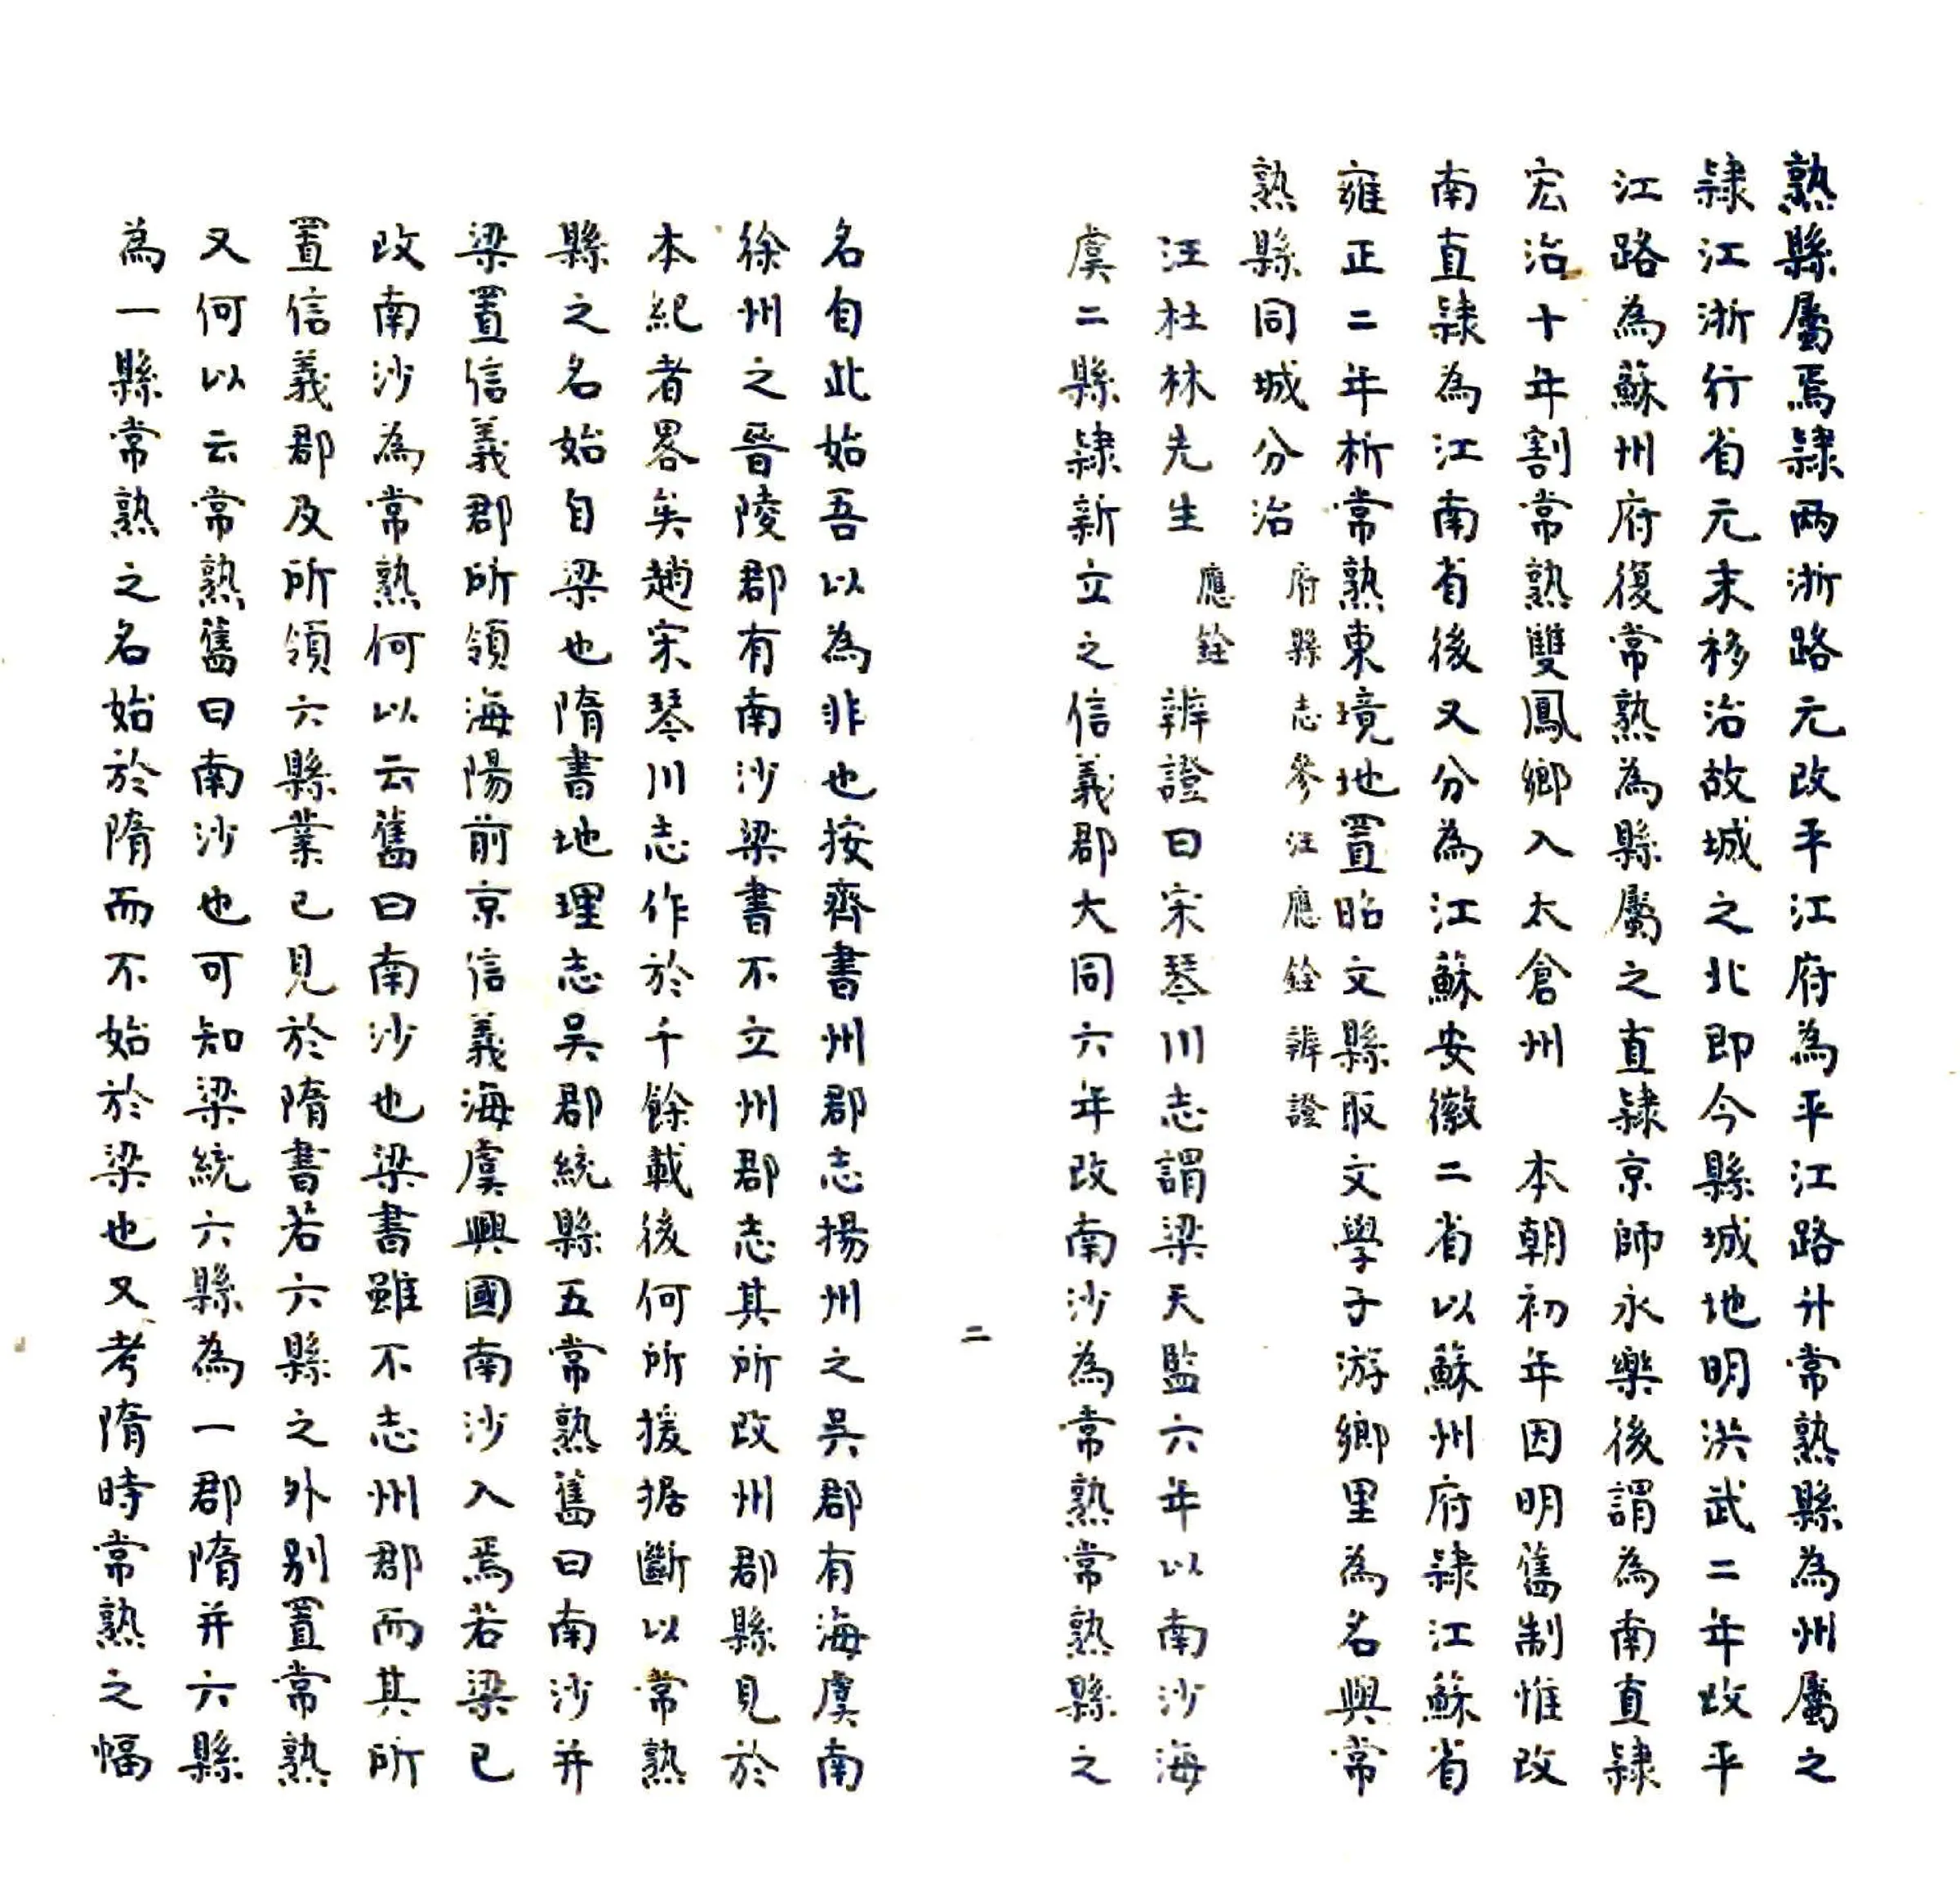 熟縣屬焉隸兩浙路元改平江府為平江路升常熟縣為州屬之
隸江浙行省元末移治故城之北即今縣城地明洪武二年改平
江路為蘇州府復常熟為縣屬之直隸京師永樂後謂為南直隸
宏治十年割常熟雙鳳鄉入太倉州　本朝初年因明舊制惟改
南直隸為江南省後又分為江蘇安徽二省以蘇州府隸江蘇省
雍正二年析常熟東境地置昭文縣取文學子游鄉里為名與常
熟縣同城分治府縣志參汪應銓辨證
汪杜林先生應銓辨證曰宋琴川志謂梁天監六年以南沙海
虞二縣隸新立之信義郡大同六年改南沙為常熟常熟縣之
二
名自此始吾以為非也按齊書州郡志揚州之吳郡有海虞南
徐州之晉陵郡有南沙梁書不立州郡志其所改州郡縣見於
本紀者畧矣趙宋琴川志作於千餘載後何所援据斷以常熟
縣之名始自梁也隋書地理志吳郡統縣五常熟舊曰南沙并
梁置信義郡所領海陽前京信義海虞興國南沙入焉若梁已
改南沙為常熟何以云舊曰南沙也梁書雖不志州郡而其所
置信義郡及所領六縣業已見於隋書若六縣之外别置常熟
又何以云常熟舊曰南沙也可知梁統六縣為一郡隋并六縣
為一縣常熟之名始於隋而不始於梁也又考隋時常熟之幅